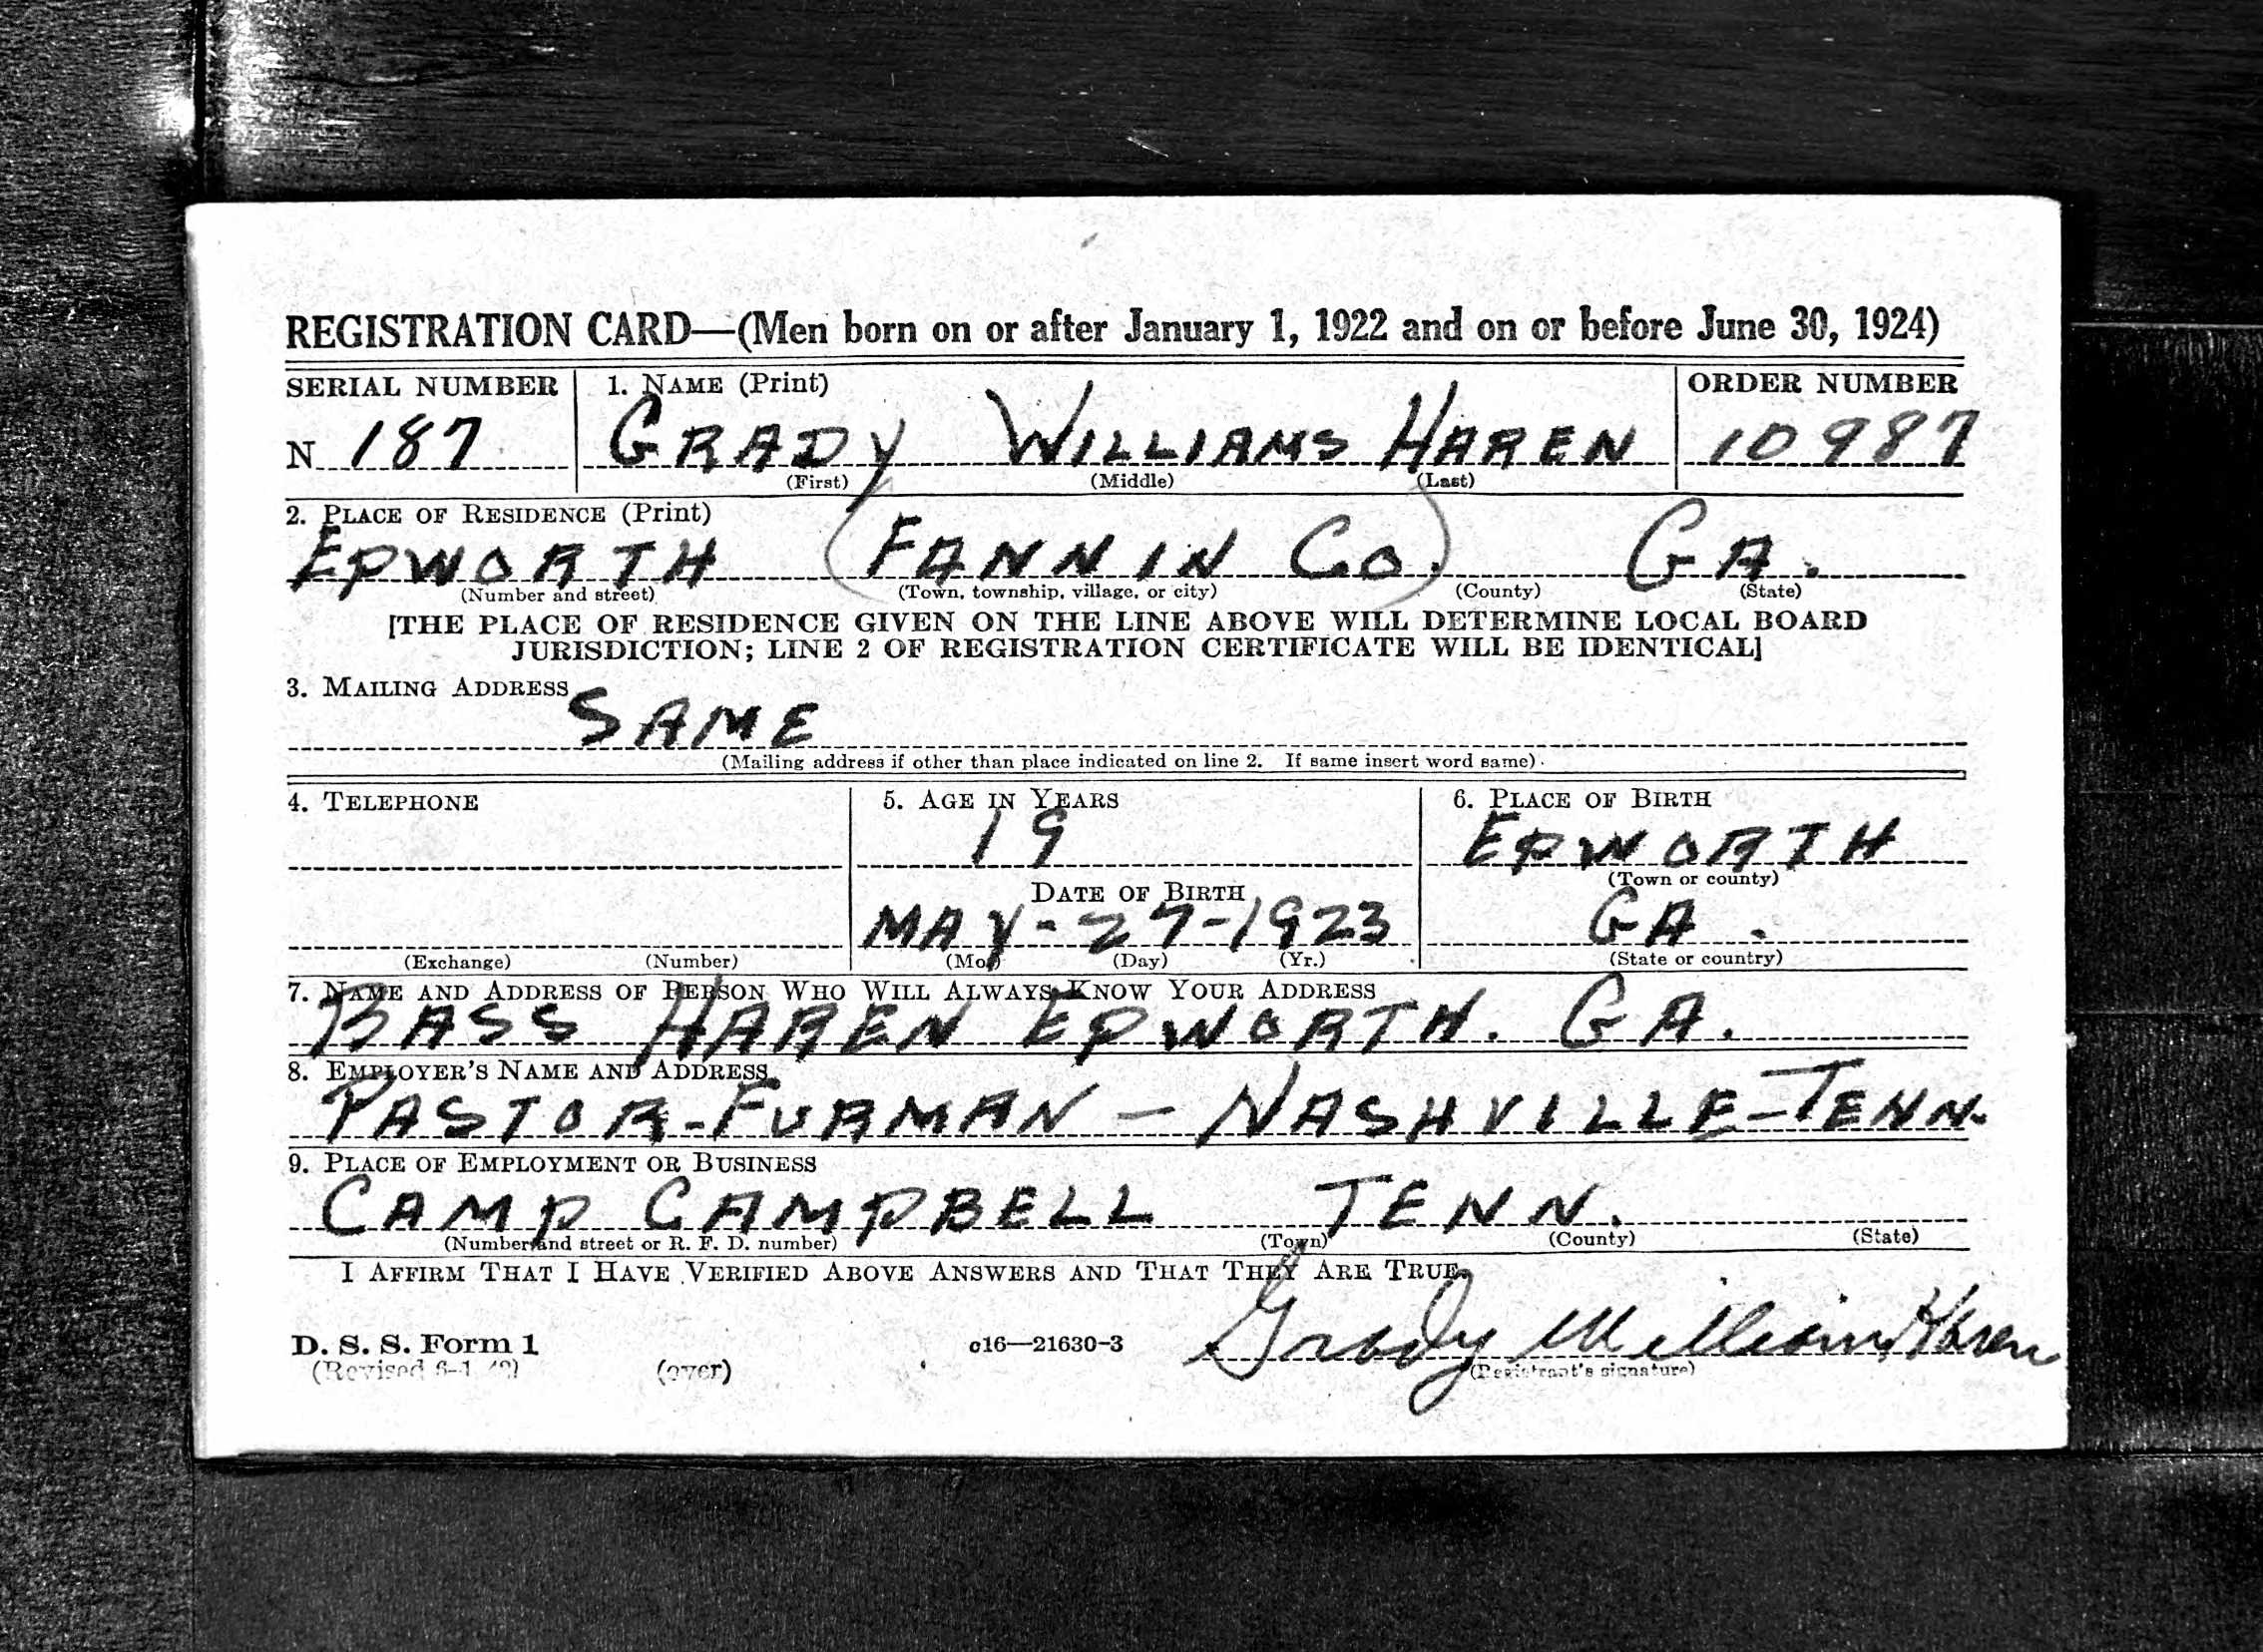 REGISTRATION CARD—(Men born on or after January 1, 1922 and on or before June 30, 1924)
SERIAL NUMBER 1. NAME (Print) ORDER NUMBER
N 187 GRADY WILLIAMS HAREN 10987
(First) (Middle) (Last)
2. PLACE OF RESIDENCE (Print)
EPWORTH (FANNIN CO.) GA.
(Number and street) (Town, township, village, or city) (County) (State)
[THE PLACE OF RESIDENCE GIVEN ON THE LINE ABOVE WILL DETERMINE LOCAL BOARD
JURISDICTION; LINE 2 OF REGISTRATION CERTIFICATE WILL BE IDENTICAL]
3. MAILING ADDRESS
SAME
(Mailing address if other than place indicated on line 2. If same insert word same)
4. TELEPHONE 5. AGE IN YEARS 6. PLACE OF BIRTH
19 EPWORTH
(Town or county)
DATE OF BIRTH
MAY-27-1923 GA.
(Exchange) (Number) (Mo.) (Day) (Yr.) (State or country)
7. NAME AND ADDRESS OF PERSON WHO WILL ALWAYS KNOW YOUR ADDRESS
BASS HAREN EPWORTH. GA.
8. EMPLOYER'S NAME AND ADDRESS
PASTOR-FURMAN — NASHVILLE-TENN.
9. PLACE OF EMPLOYMENT OR BUSINESS
CAMP CAMPBELL TENN.
(Number and street or R. F. D. number) (Town) (County) (State)
I AFFIRM THAT I HAVE VERIFIED ABOVE ANSWERS AND THAT THEY ARE TRUE.
Grady Williams Haren
D. S. S. Form 1 c16—21630-3
(Revised 6-1-42) (over) (Registrant's signature)